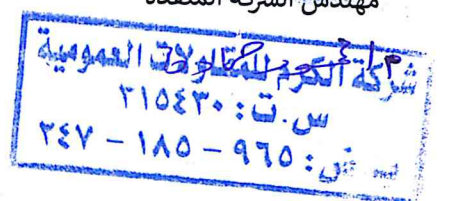 مهندس الشركة المنفذة
شركة الكرم للمقاولات العمومية
س.ت: ٢١٥٤٣٠
ض: ٩٦٥ - ١٨٥ - ٢٤٧